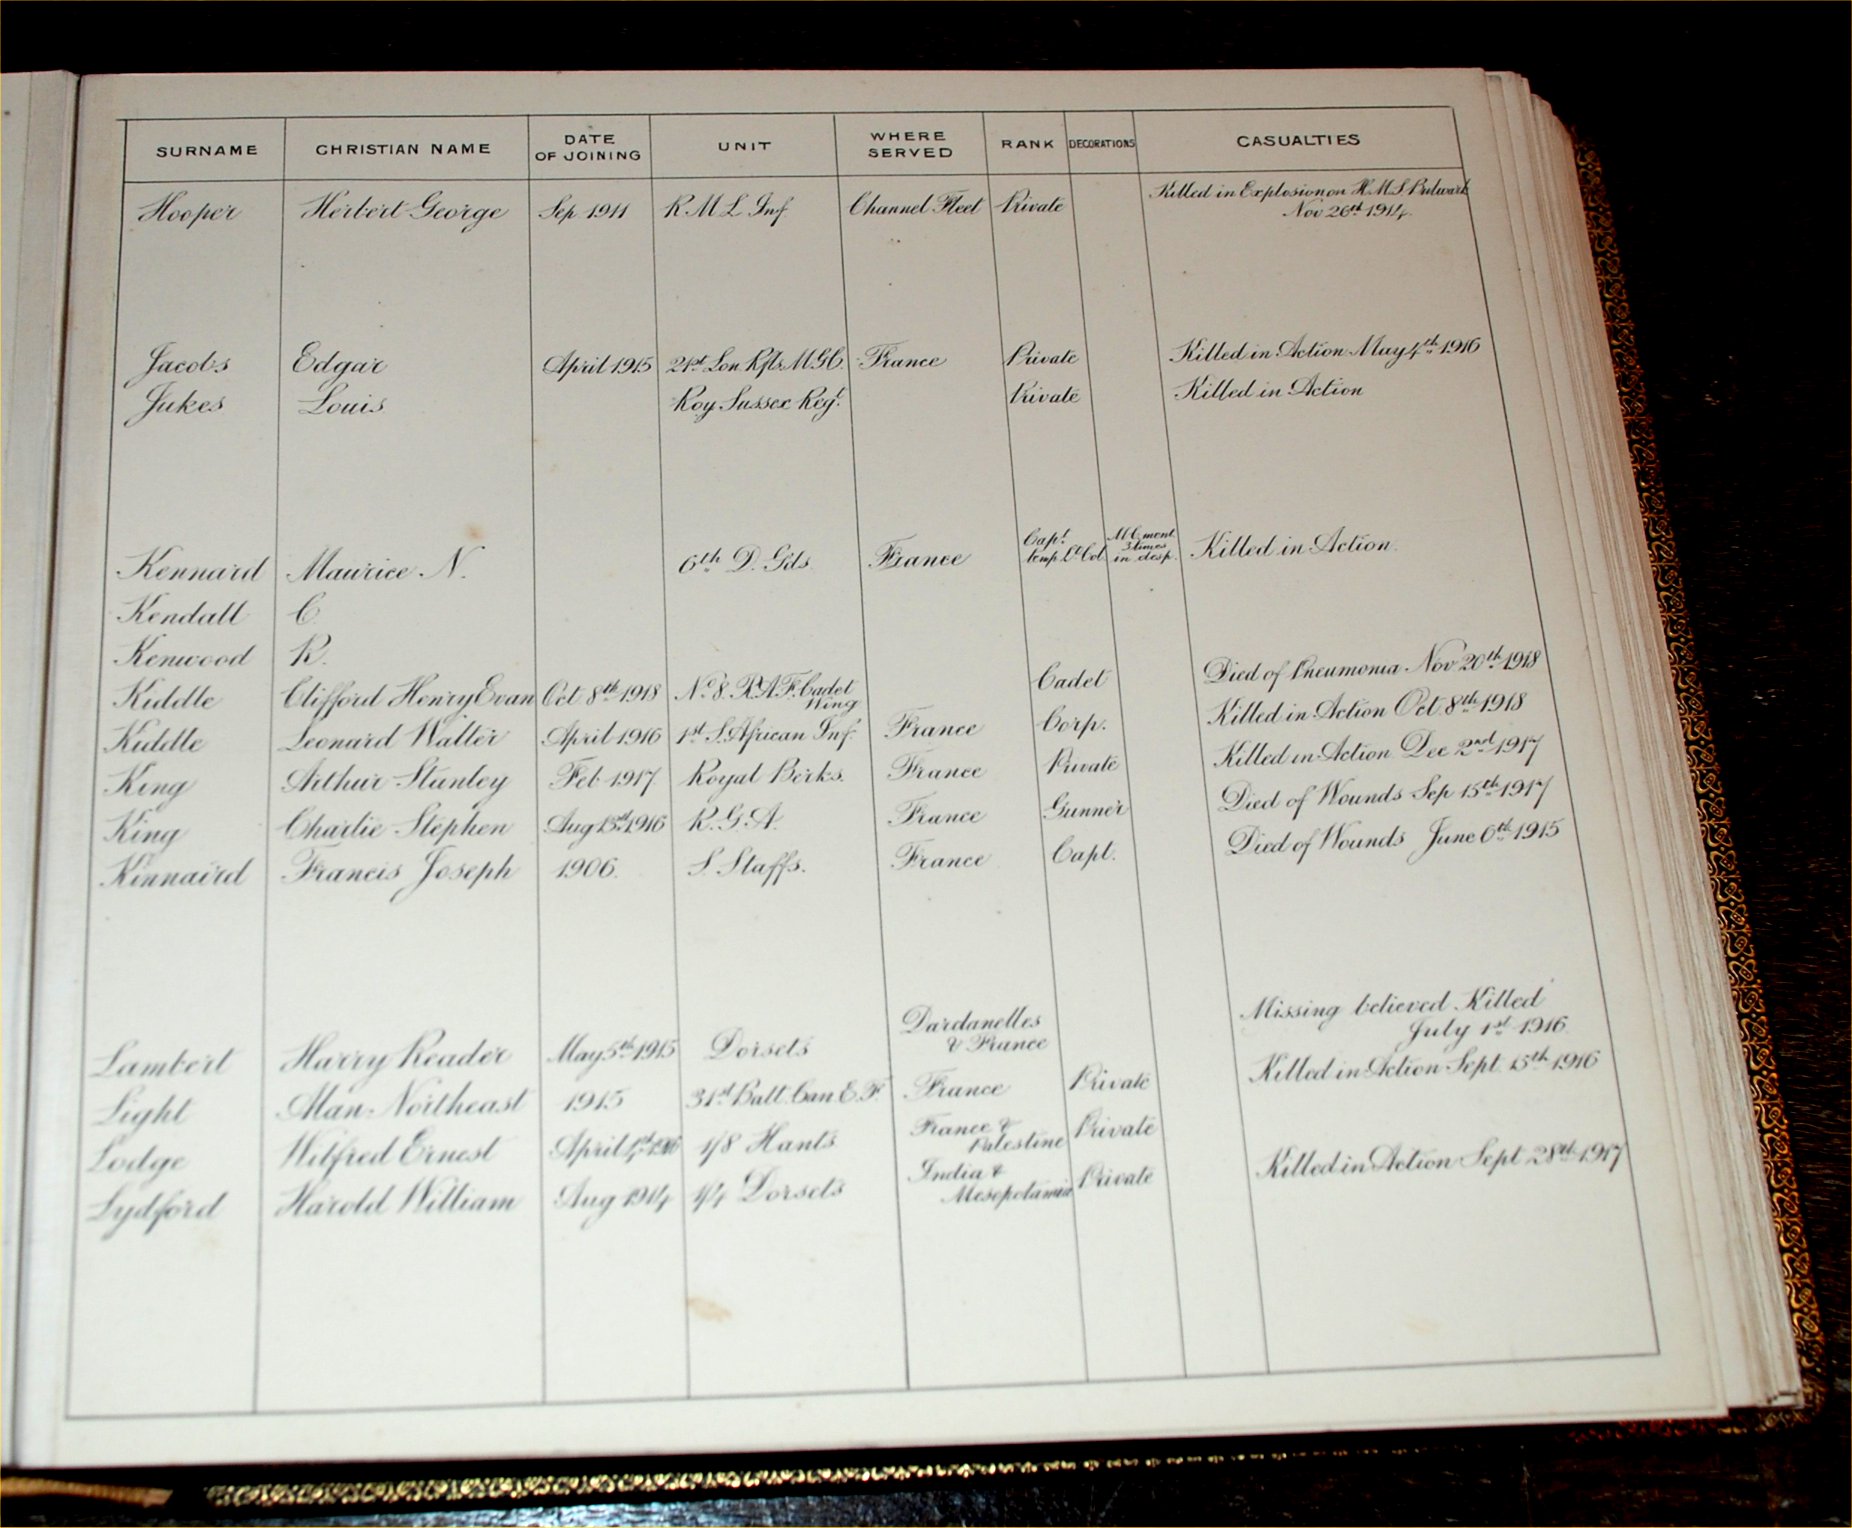 SURNAME CHRISTIAN NAME DATE OF JOINING UNIT WHERE SERVED RANK DECORATIONS CASUALTIES
Hooper Herbert George Sep 1911 R M L Inf Channel Fleet Private Killed in Explosion on H.M.S. Bulwark
Nov 26th 1914.
Jacobs Edgar April 1915 21st Lon Rfls M.G.C. France Private Killed in Action May 4th 1916
Jukes Louis Roy Sussex Regt. Private Killed in Action
Kennard Maurice N. 6th D. Gds. France Capt. temp. Lt Col. M.C. ment. 3 times in desp. Killed in Action.
Kendall C
Kenwood R.
Kiddle Clifford Henry Evan Oct 8th 1918 No 8. R.A.F. Cadet Wing Cadet Died of Pneumonia Nov 20th 1918
Kiddle Leonard Walter April 1916 1st S. African Inf. France Corp. Killed in Action Oct. 8th 1918
King Arthur Stanley Feb 1917 Royal Berks. France Private Killed in Action Dec 2nd 1917
King Charlie Stephen 1916 R.G.A. France Gunner Died of Wounds Sep 15th 1917
Kinnaird Francis Joseph 1906. S. Staffs. France Capt. Died of Wounds June 6th 1915
Lambert Harry Reader May 5th 1915 Dorsets Dardanelles & France Missing believed Killed
July 1st 1916
Light Alan Northeast 1915 31st Batt. Can E.F. France Private Killed in Action Sept. 15th 1916
Lodge Wilfred Ernest April 1/8 Hants France & Palestine Private
Lydford Harold William Aug 1914 1/4 Dorsets India & Mesopotamia Private Killed in Action Sept 28th 1917